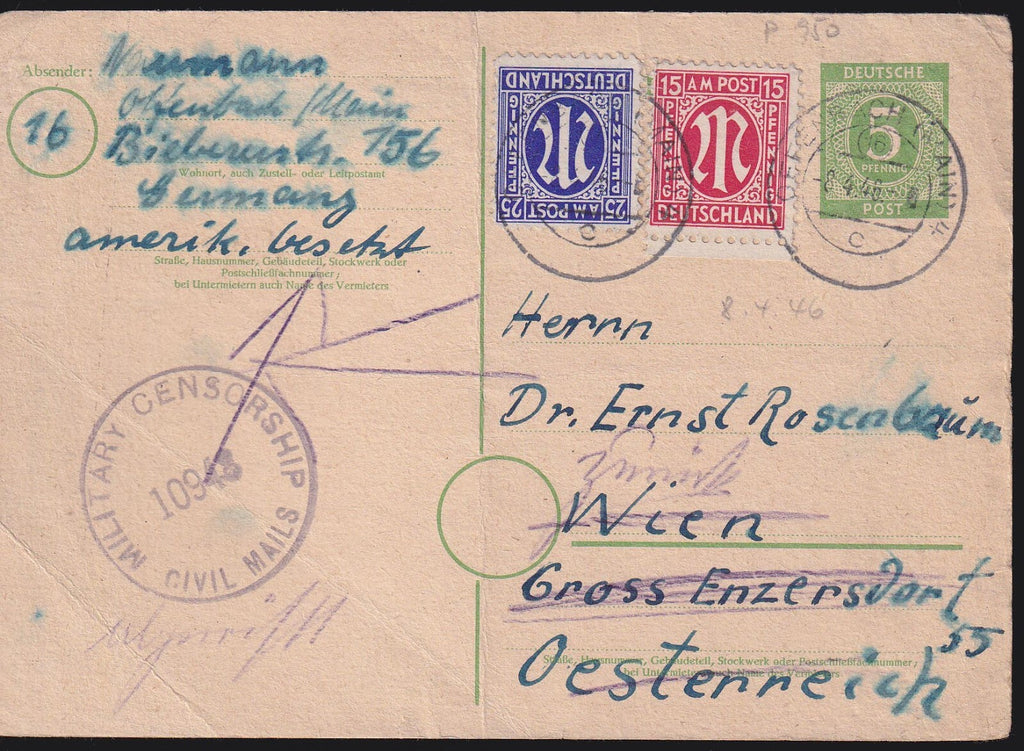 P 950
Absender: Naumann
Offenbach /Main
16
Bieberestr. 156
Wohnort, auch Zustell- oder Leitpostamt
Germany
amerik. besetzt
Straße, Hausnummer, Gebäudeteil, Stockwerk oder
Postschließfachnummer;
bei Untermietern auch Name des Vermieters
DEUTSCHLAND
PFENNIG PFENNIG
25 AM POST 25
15 AM POST 15
PFENNIG PFENNIG
DEUTSCHLAND
DEUTSCHE
5
PFENNIG
POST
(MAIN) 4
c
c
8.4.46
Herrn
Dr. Ernst Rosenbaum
Wien
Gross Enzersdorf
55
Straße, Hausnummer, Gebäudeteil, Stockwerk oder Postschließfachnummer;
bei Untermietern auch Name des Vermieters
Oesterreich
MILITARY CENSORSHIP
10948
CIVIL MAILS